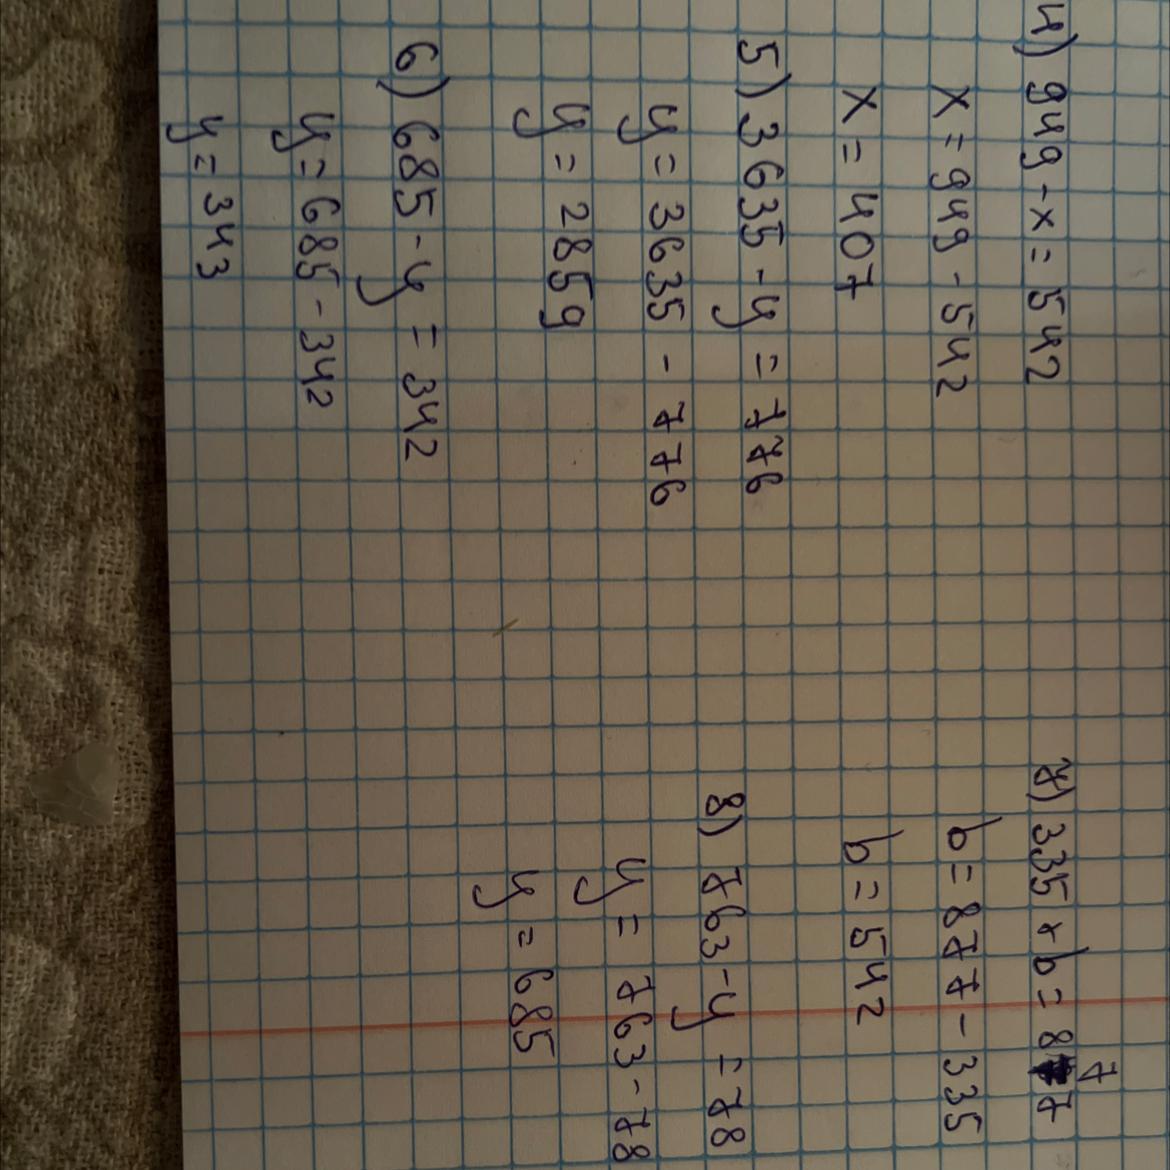 4) 949 - x = 542
x = 949 - 542
x = 407
5) 3635 - y = 776
y = 3635 - 776
y = 2859
6) 685 - y = 342
y = 685 - 342
y = 343
7) 335 + b = 877
b = 877 - 335
b = 542
8) 763 - y = 78
y = 763 - 78
y = 685